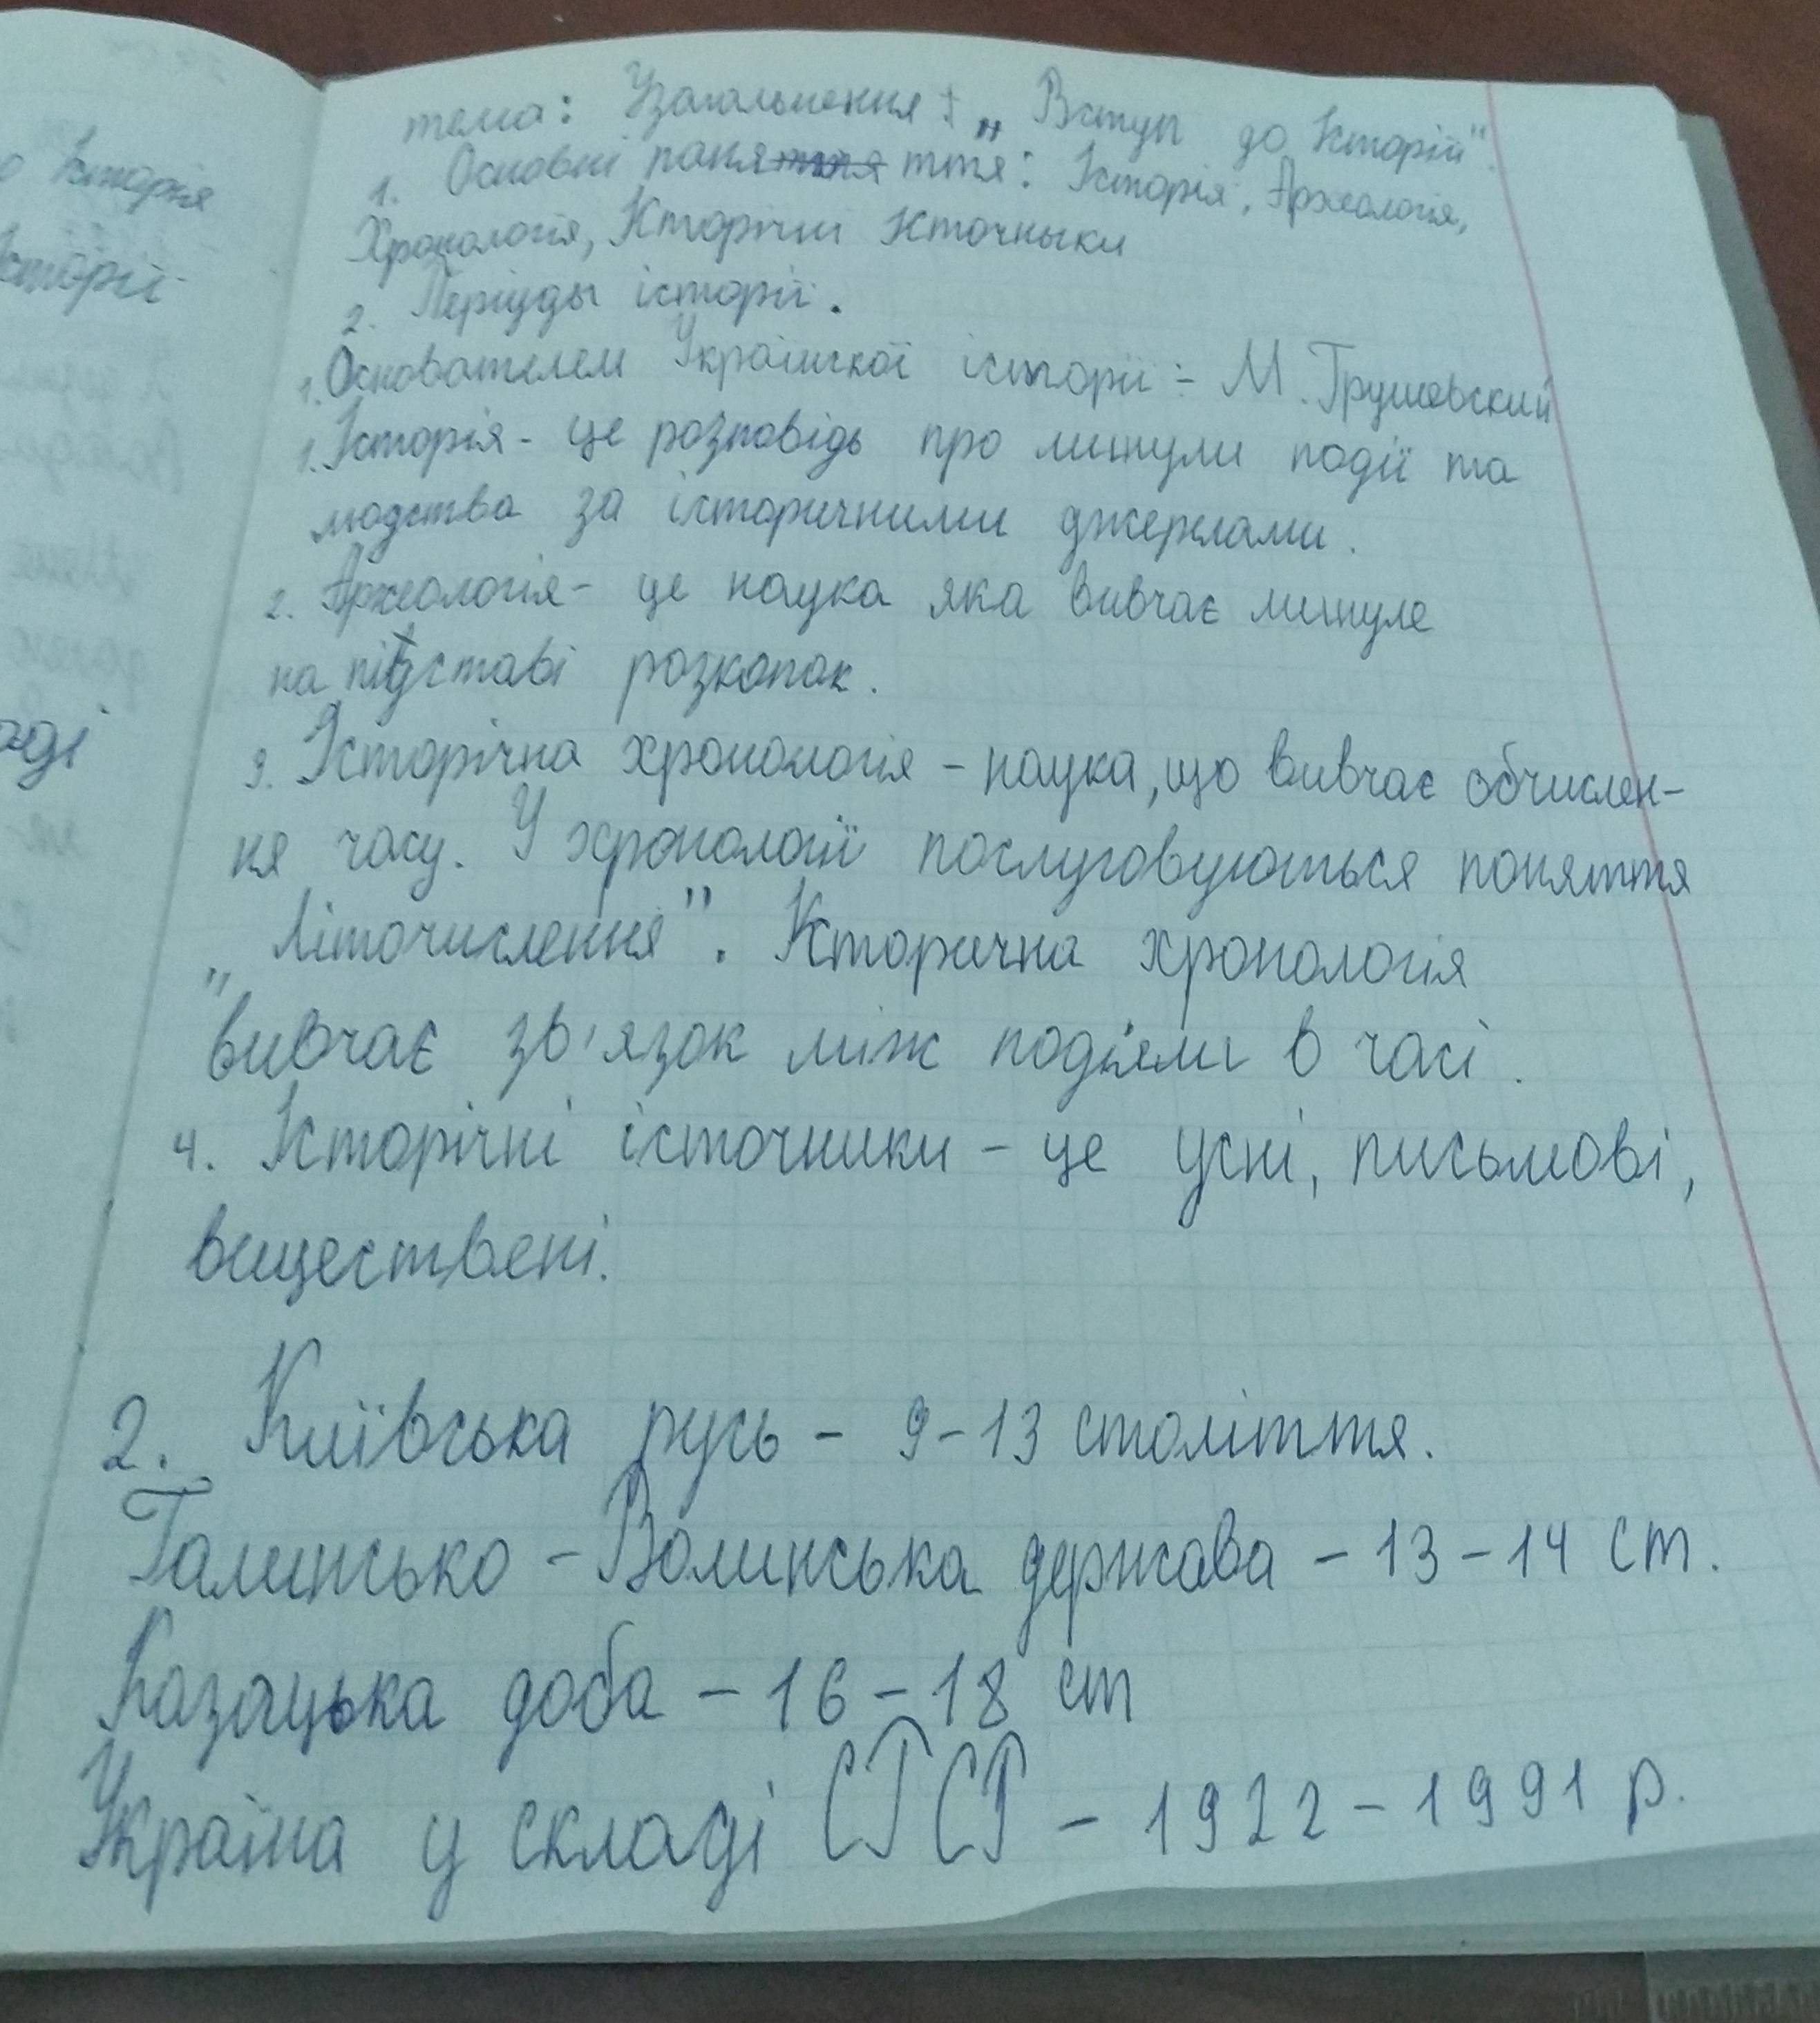 тема: Узагальнення: „Вступ до Історій".
1. Основні паняття: Історія, Археологія,
Хронологія, Історічні Источныки
2. Періуды історіі.
1. Основателем Українскої історіі - М. Грушевский
1. Історія - це розповідь про минули події та
людства за історичними джерлами.
2. Археологія - це наука яка вивчає минуле
на підставі розкопок.
3. Історічна хронологія - наука, що вивчає обчислен-
ня часу. У хронології послуговуються поняття
„Літочислення". Історична хронологія
вивчає зв'язок між подіями в часі.
4. Історічні істочники - це усні, письмові,
виществені.
2. Київська русь - 9-13 століття.
Галинсько - Волинська держава - 13-14 ст.
Казацька доба - 16-18 ст
Україна у складі СРСР - 1922-1991 р.
до Історія
Історії